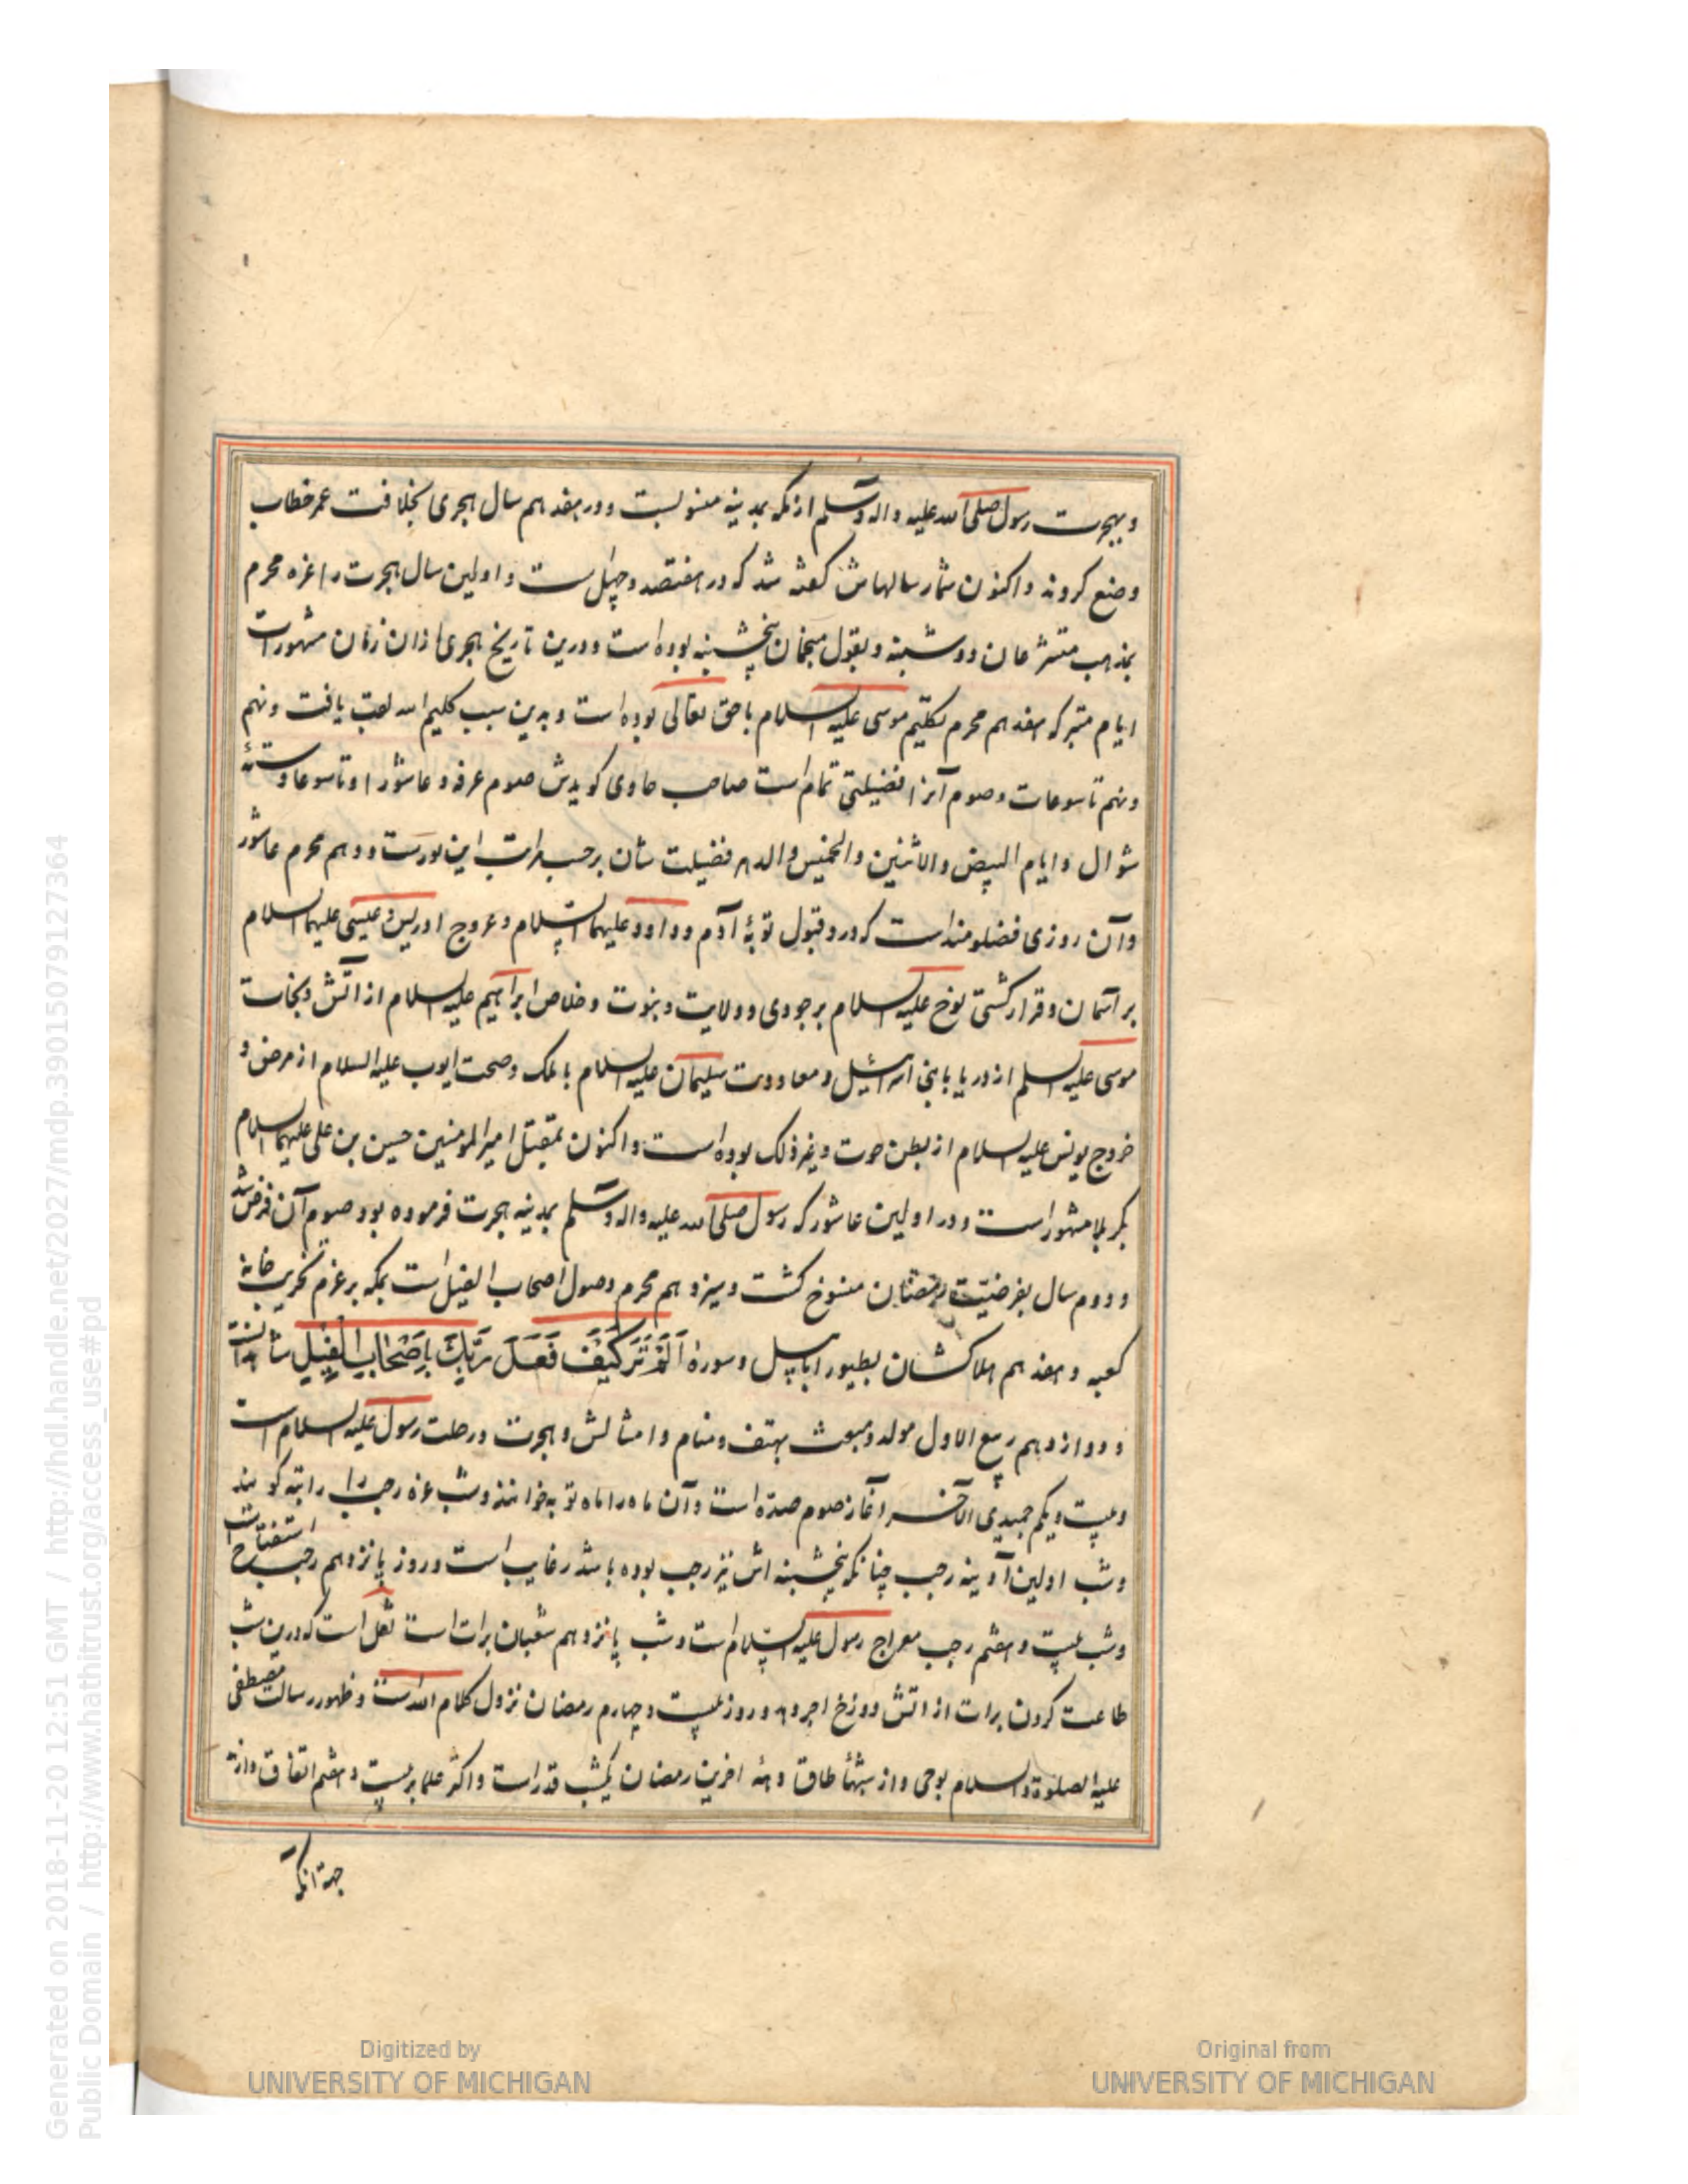 و بهجرت رسول صلی الله علیه و اله و سلم از مکه بمدینه منسوبست و در هفدهم سال هجری بخلافت عمر خطاب
وضع کردند و اکنون شمار سالهاش گفته شد که در هفتصد و چهل است و اولین سال هجرت را غزه محرم
بمذهب متشرعان دوشنبه و بقول منجمان پنجشنبه بوده است و درین تاریخ هجری ازان زمان مشهور است
ایام متبرکه هفدهم محرم تکلیم موسی علیه السلام با حق تعالی بوده است و بدین سبب کلیم الله لقب یافت و نهم
و نهم تاسوعات و صوم آنرا فضیلتی تمام است صاحب حاوی کویدش صوم عرفه و عاشورا و تاسوعا و ستة
شوال و ایام البیض و الاثنین و الخمیس و الدهر فضیلت شان برحسب مراتب این بورست و دهم محرم عاشور
و آن روزی فضلومند است که درو قبول توبهٔ آدم و داود علیهما السلام و عروج ادریس و عیسی علیهما السلام
بر آسمان و قرار کشتی نوح علیه السلام بر جودی و ولایت و نبوت و خلاص ابراهیم علیه السلام از اتش و نجات
موسی علیه السلم از دریا با بنی اسرائیل و معاودت سلیمان علیه السلام با ملک و صحت ایوب علیه السلام از مرض و
خروج یونس علیه السلام از بطن حوت و غیر ذلک بوده است و اکنون بمقتل امیر المومنین حسین بن علی علیهما السلام
بکربلا مشهور است و در اولین عاشور که رسول صلی الله علیه و اله و سلم بمدینه هجرت فرموده بود صوم آن فرض شد
و دوم سال بفرضیت رمضان منسوخ کشت و سیزدهم محرم وصول اصحاب الفیل است بمکه بر عزم تخریب خانهٔ
کعبه و هفدهم هلاک شان بطیور ابابیل و سورهٔ اَلَمْ تَرَ كَيْفَ فَعَلَ رَبُّكَ بِأَصْحَابِ الْفِيلِ شاهد آنست
و دوازدهم ربیع الاول مولد و مبعث بهتف و منام و امثالش و هجرت و رحلت رسول علیه السلام است
و بیست و یکم جمیدی الآخر آغاز صوم صده است و آن ماه را ماه توبه خوانند و شب غزه رجب را راتبه کویند
و شب اولین آدینه رجب چنانکه پنجشنبه اش نیز رجب بوده باشد رغایب است و روز پانزدهم رجب استفتاح است
و شب بیست و هفتم رجب معراج رسول علیه السلام است و شب پانزدهم شعبان برات است نقل است که درین شب
طاعت کردن برات از اتش دوزخ اجر دهد و روز بیست و چهارم رمضان نزول کلام الله است و ظهور رسالت مصطفی
علیه الصلوة و السلام بوحی و از شبهأ طاق دههٔ اخرین رمضان یکشب قدر است و اکثر علما بر بیست و هفتم اتفاق دارند
جهة آنکه
Generated on 2018-11-20 12:51 GMT / http://hdl.handle.net/2027/mdp.39015079127364
Public Domain / http://www.hathitrust.org/access_use#pd
Digitized by
UNIVERSITY OF MICHIGAN
Original from
UNIVERSITY OF MICHIGAN